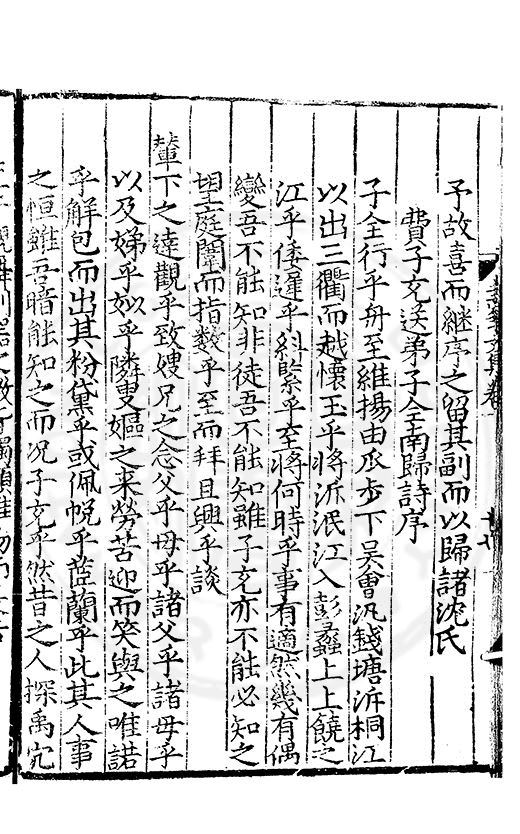 予故喜而継序之留其副而以歸諸沈氏
費子充送弟子全南歸詩序
子全行乎舟至維揚由瓜步下吳會汎錢塘泝桐江
以出三衢而越懷玉乎將泝泯江入彭蠡上上饒之
江乎倭遲乎紆縈乎至將何時乎事有適然幾有偶
變吾不能知非徒吾不能知雖子充亦不能必知之
望庭闈而指数乎至而拜且興乎談
輦下之達觀乎致嫂兄之念父乎母乎諸父乎諸母乎
以及娣乎姒乎隣叟嫗之来勞苦迎而笑與之唯諾
乎解包而出其粉黛乎或佩帨乎茝蘭乎此其人事
之恒雖吾暗能知之而况子充乎然昔之人探禹穴